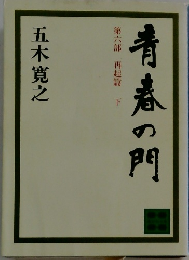 青春の門
第六部 再起篇 下
五木寛之